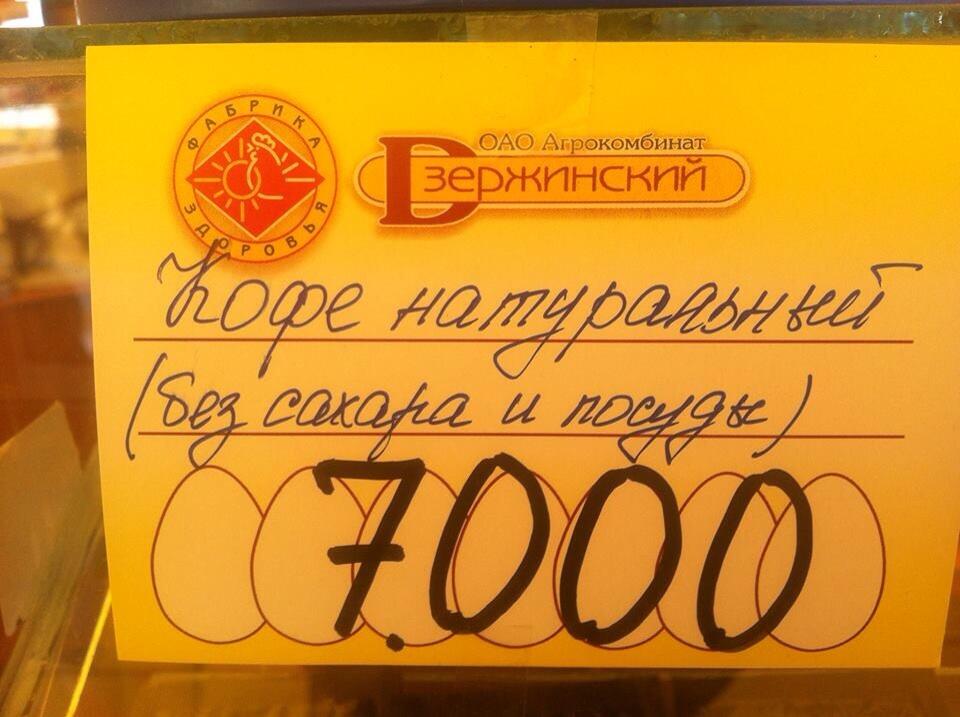 ФАБРИКА ЗДОРОВЬЯ
ОАО Агрокомбинат
Dзержинский
Кофе натуральный
(без сахара и посуды)
7.000